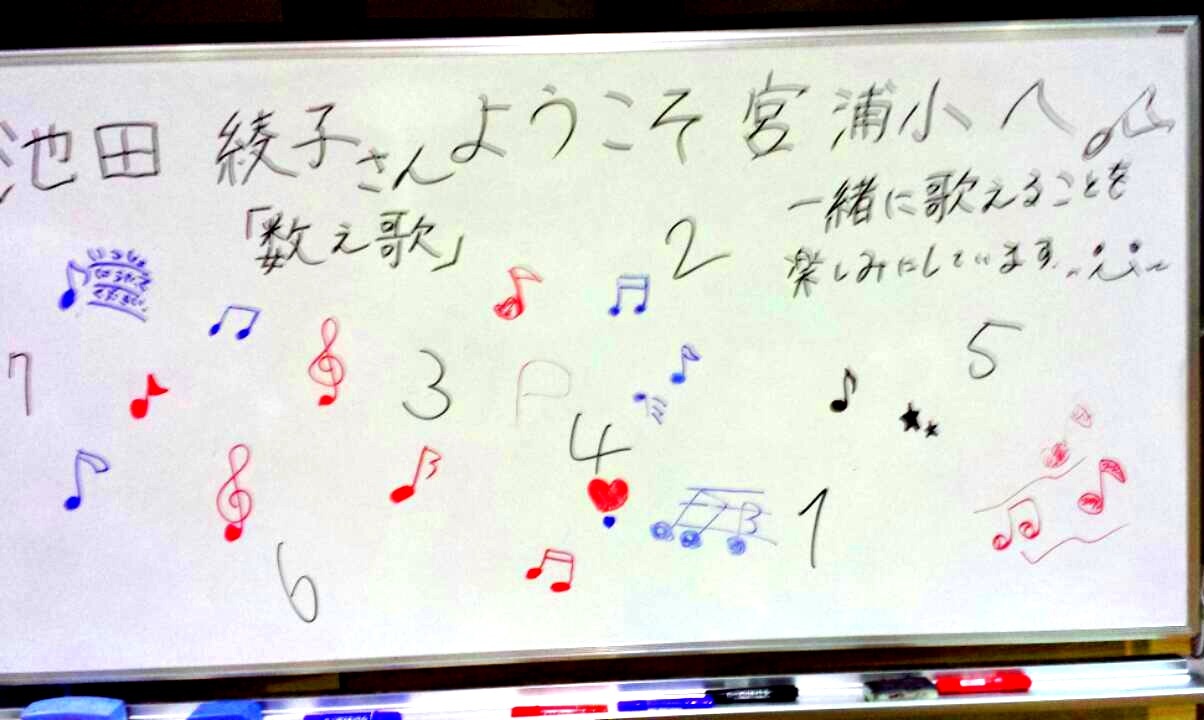 池田 綾子さんようこそ宮浦小へ
「数え歌」
一緒に歌えることを
楽しみにしています
2
7
3
P
4
5
1
6